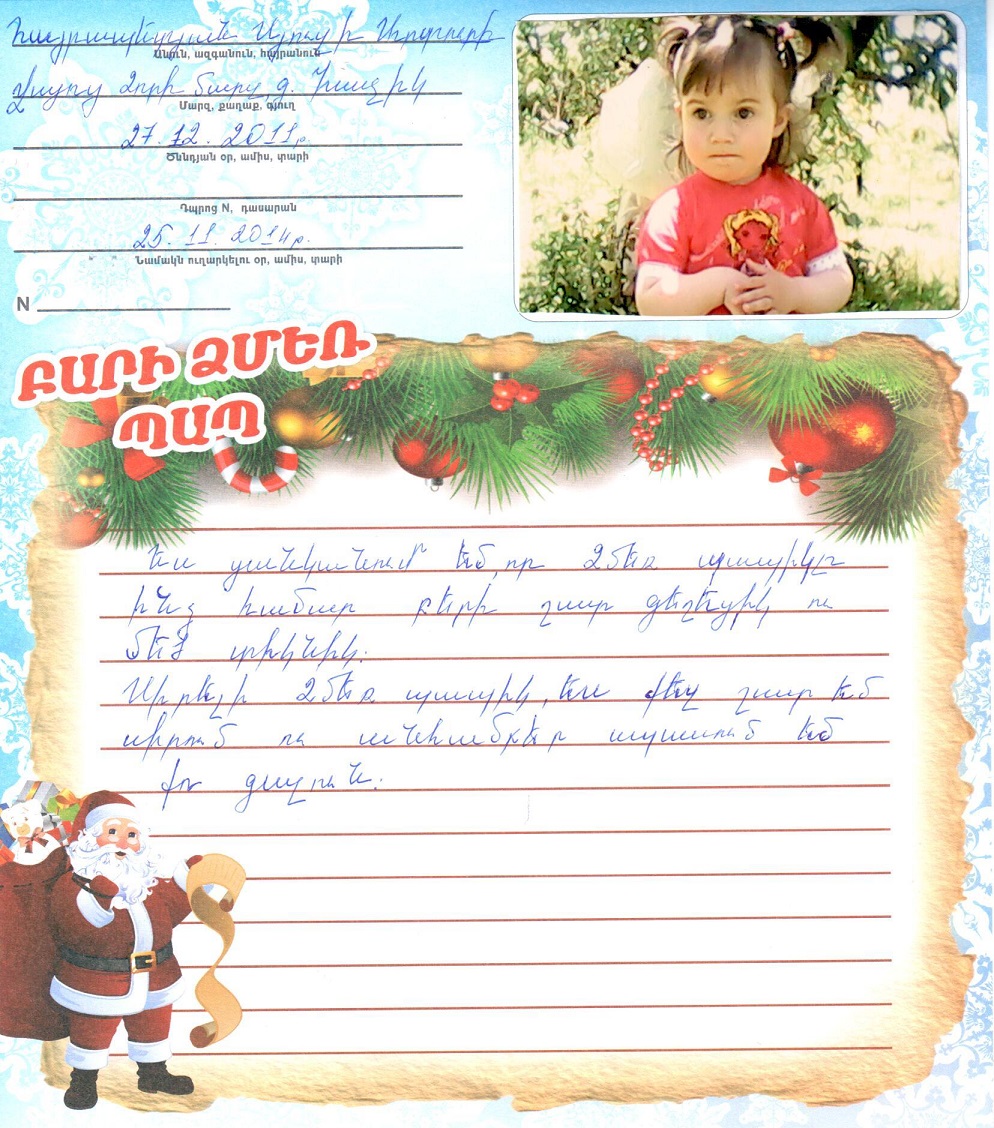 Հայրապետյան Արփի Արթուրի
Անուն, ազգանուն, հայրանուն
Վայոց Ձորի մարզ գ. Խաչիկ
Մարզ, քաղաք, գյուղ
27.12.2011թ.
Ծննդյան օր, ամիս, տարի
Դպրոց N, դասարան
25.11.2014թ.
Նամակն ուղարկելու օր, ամիս, տարի
N
ԲԱՐԻ ՁՄԵՌ
ՊԱՊ
Ես ցանկանում եմ, որ Ձմեռ պապիկը
ինձ համար բերի շատ գեղեցիկ ու
մեծ տիկնիկ:
Սիրելի Ձմեռ պապիկ, ես քեզ շատ եմ
սիրում ու անհամբեր սպասում եմ
քո գալուն: